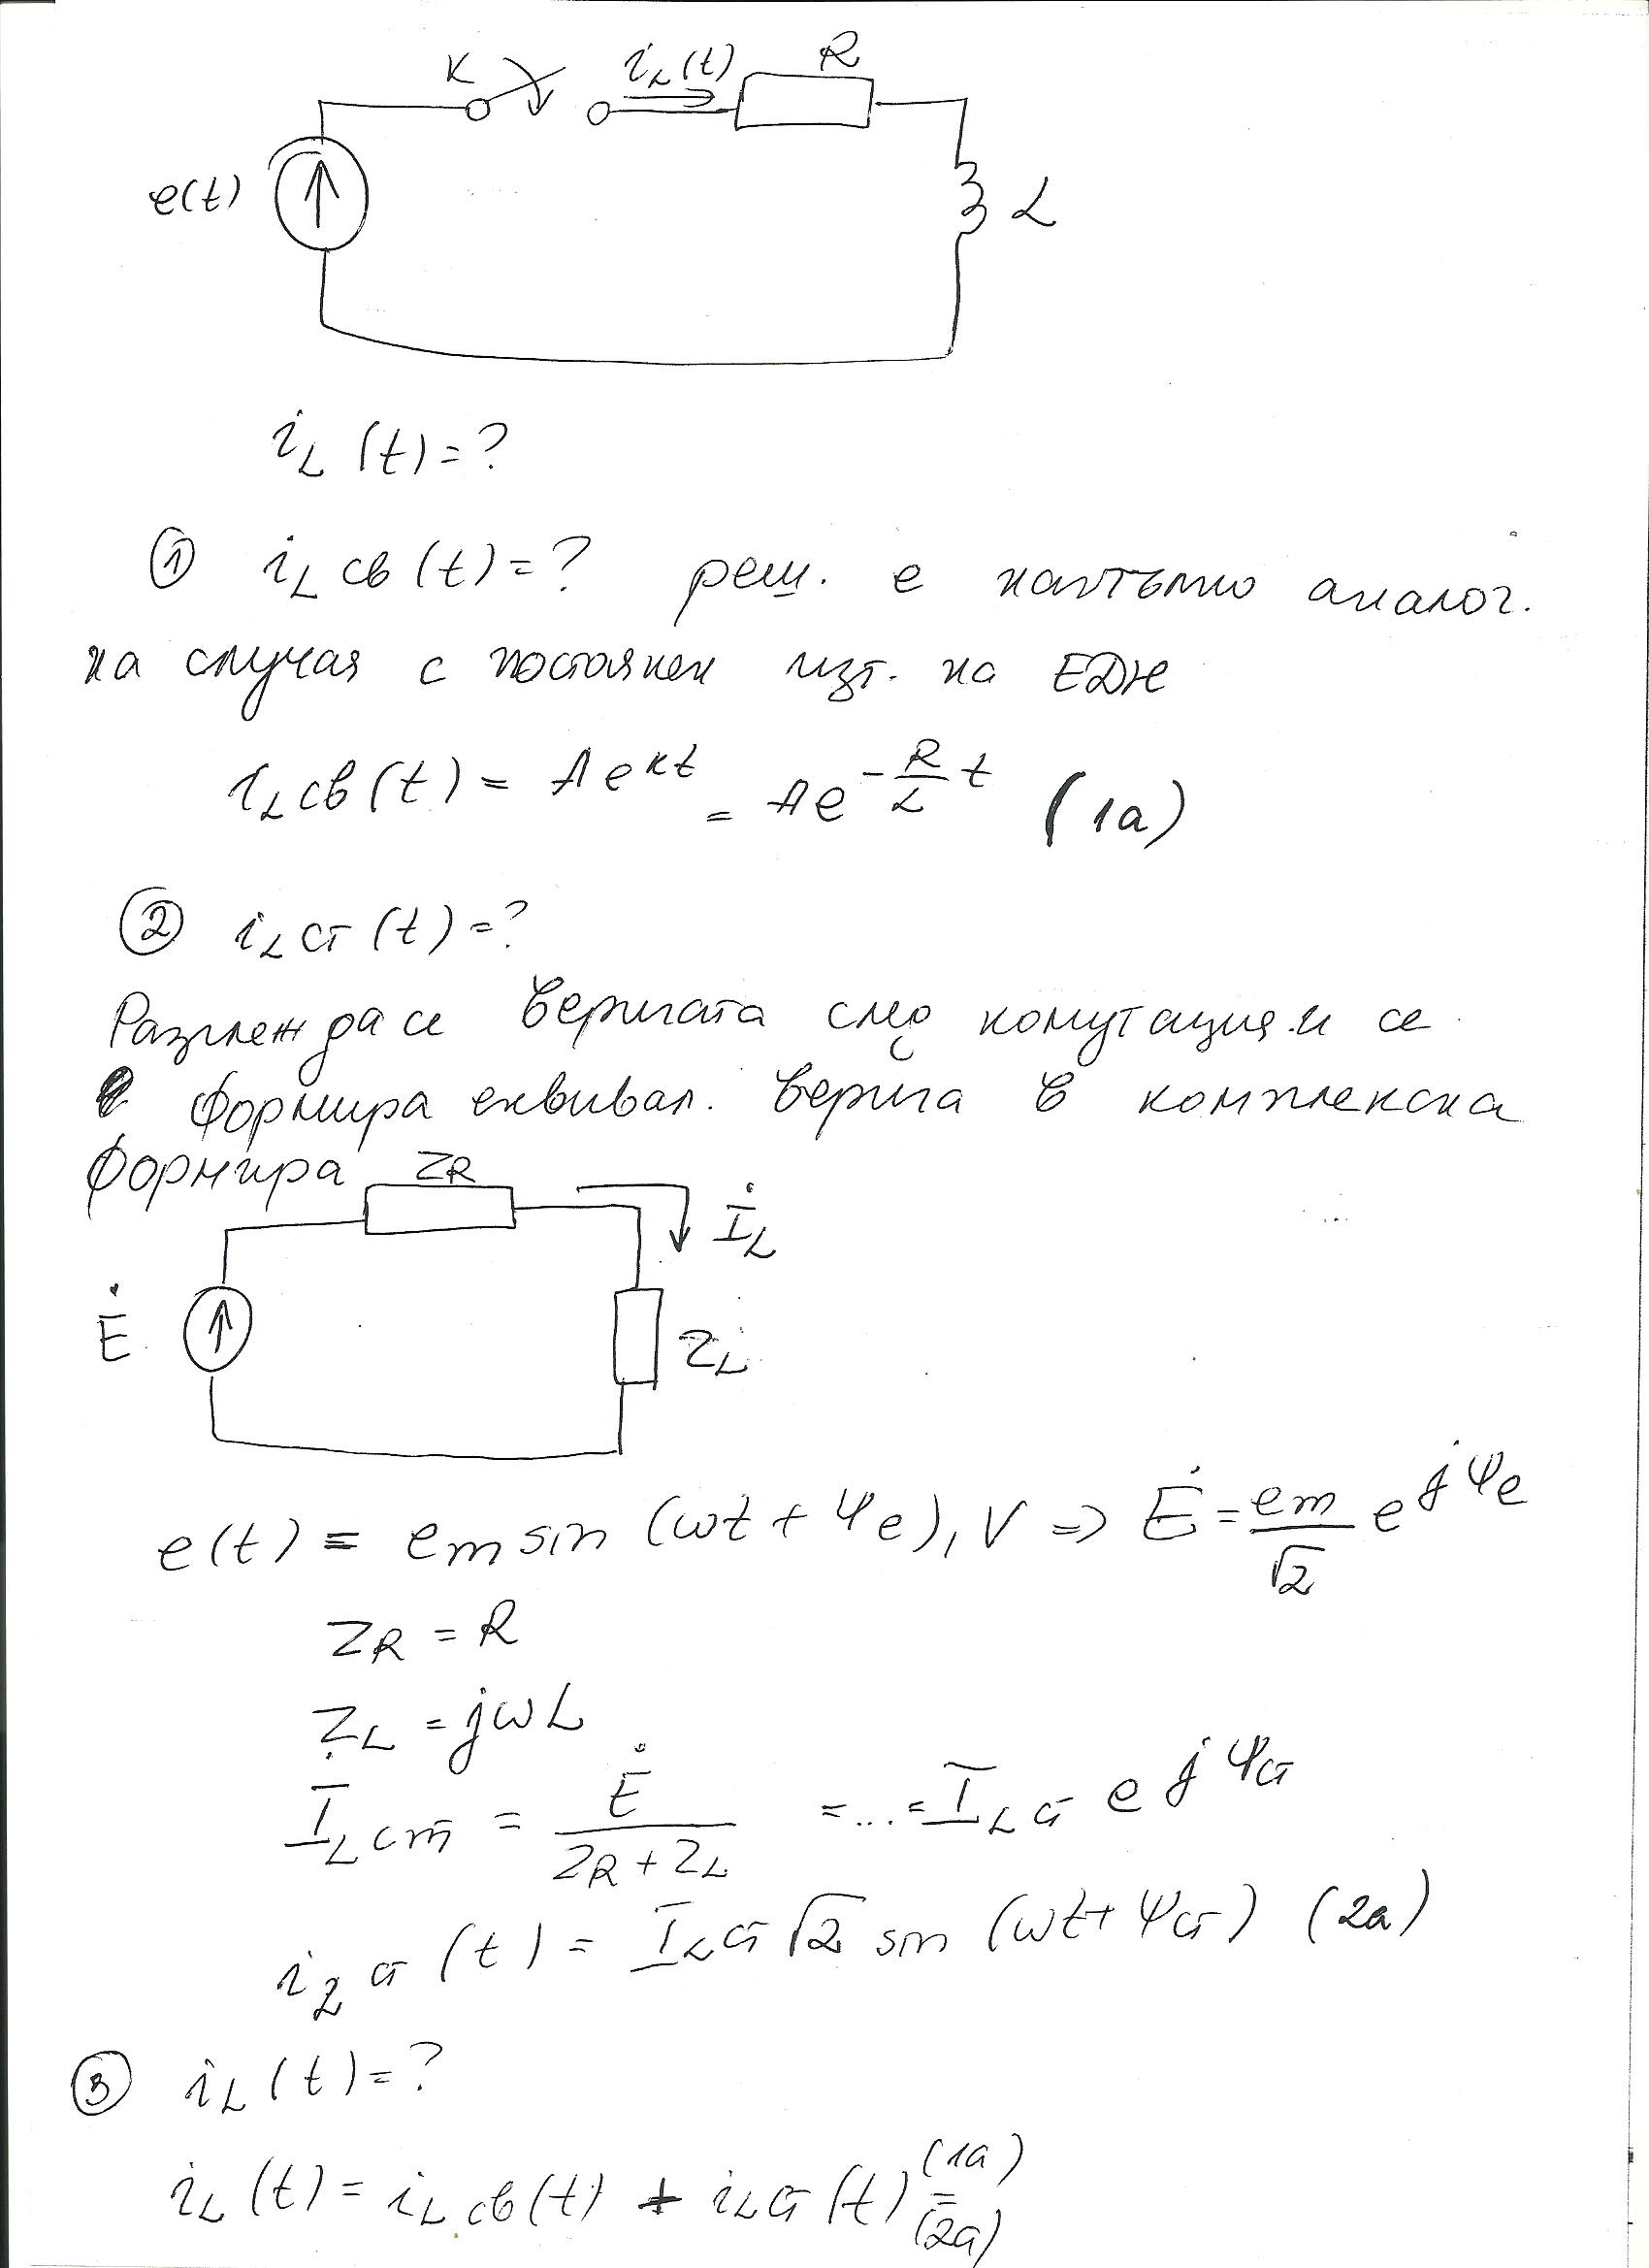 K
i_L(t)
R
e(t)
L
i_L (t) = ?
① i_L св (t) = ? реш. е напълно аналог.
на случая с постоянен изт. на ЕДН
i_L св (t) = A e^{kt} = A e^{-\frac{R}{L} t} (1a)
② i_L ст (t) = ?
Разглежда се веригата след комутация и се
формира еквивал. верига в комплексна
формира
Z_R
İ_L
Ė
Z_L
e(t) = e_m sin (ωt + ψ_e), V => Ė = \frac{e_m}{√2} e^{jψ_e}
Z_R = R
Z_L = jωL
İ_L ст = \frac{Ė}{Z_R + Z_L} = ... = I_L ст e^{jψ_ст}
i_L ст (t) = I_L ст √2 sin (ωt + ψ_ст) (2a)
③ i_L (t) = ?
(1a)
i_L (t) = i_L св (t) + i_L ст (t) =
(2a)